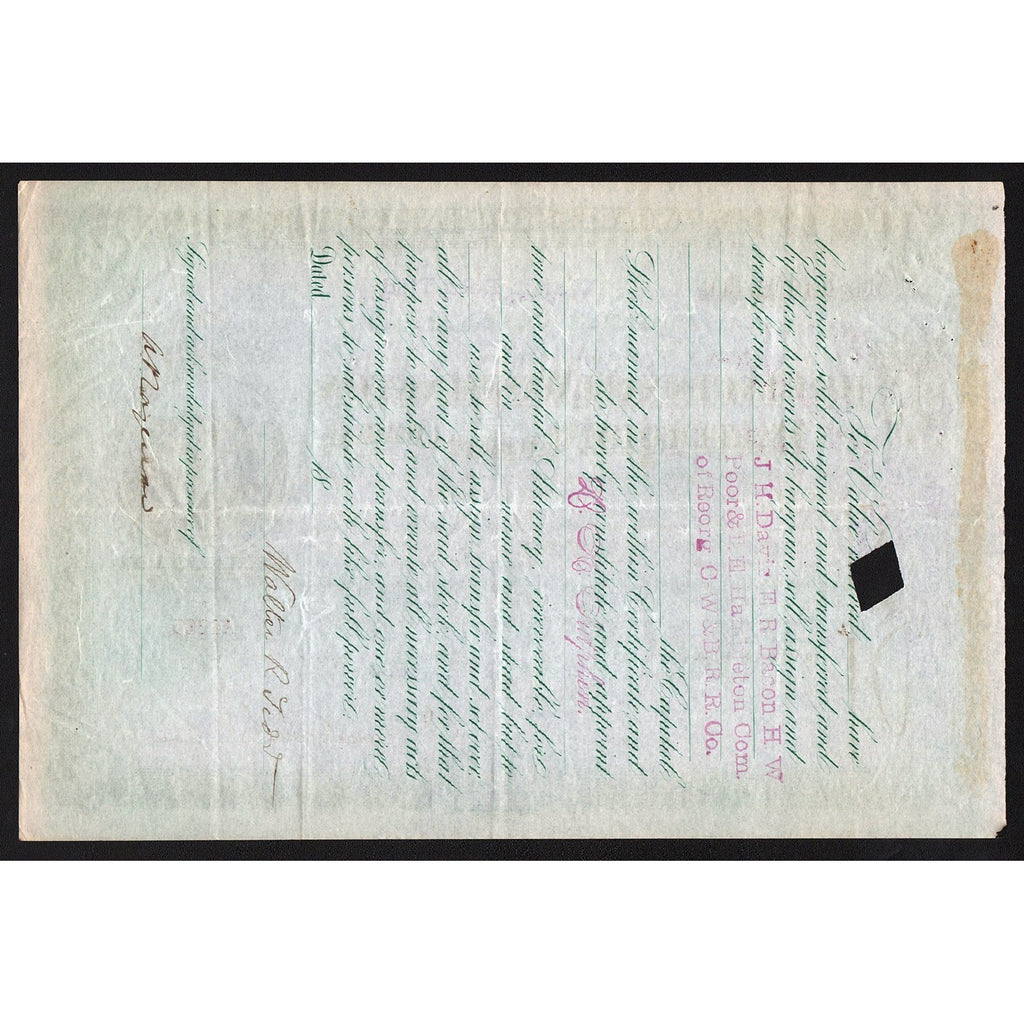 For Value
have
bargained, sold, assigned and transferred and
by these presents do bargain, sell, assign and
transfer unto
J H. Davis E R Bacon H. W
Poor & Com.
of Reorg C W & B R R. Co.
the Capital
Stock named in the within Certificate, and
do hereby constitute and appoint
true and lawful Attorney, irrevocable, for
and in name and stead but to
use to sell, assign, transfer and set over,
all or any part of the said stock, and for that
purpose to make and execute all necessary acts
of assignment and transfer, and one or more
persons to substitute with like full power.
Dated 18
Walter R
Signed and acknowledged in presence of